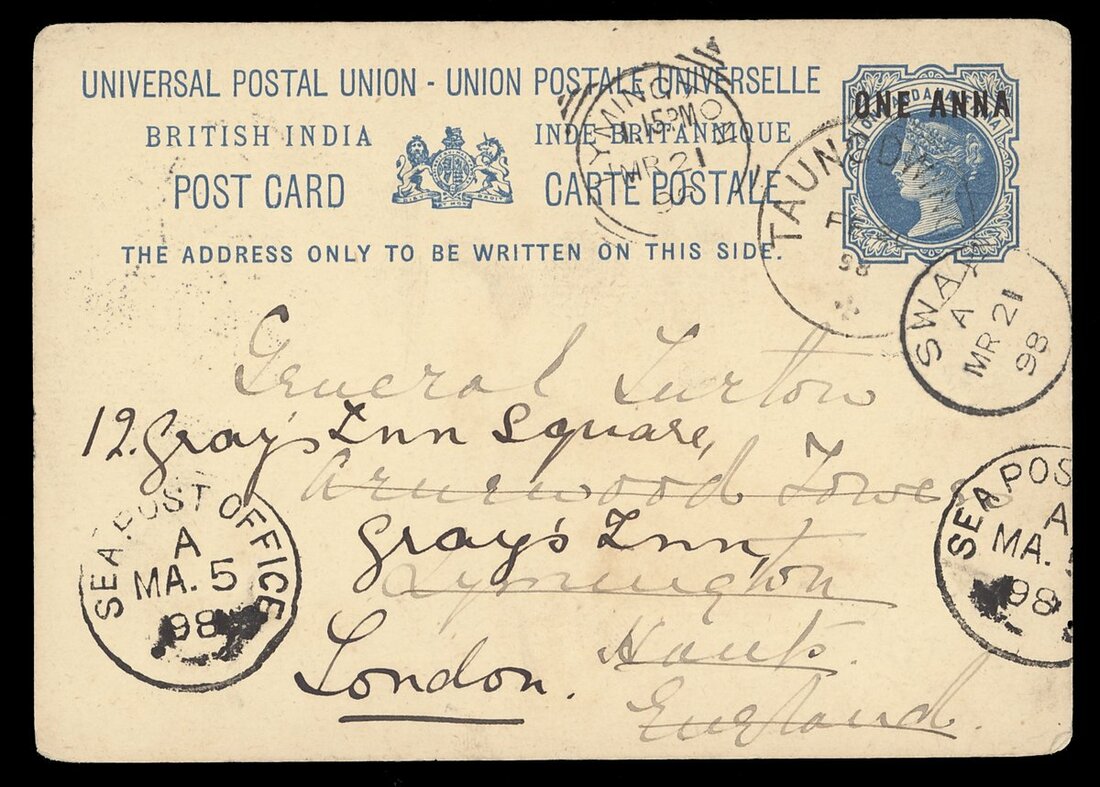 UNIVERSAL POSTAL UNION - UNION POSTALE UNIVERSELLE
BRITISH INDIA
INDE BRITANNIQUE
POST CARD
CARTE POSTALE
THE ADDRESS ONLY TO BE WRITTEN ON THIS SIDE.
ONE ANNA
1.15PM
MR 21
TAUN
98
A
MR 21
98
General Turton
12. Gray's Inn Square,
Arnewood Towers
Gray's Inn,
Lymington
Hants.
London.
England.
SEA POST OFFICE
A
MA. 5
98
SEA POS
A
MA. 5
98